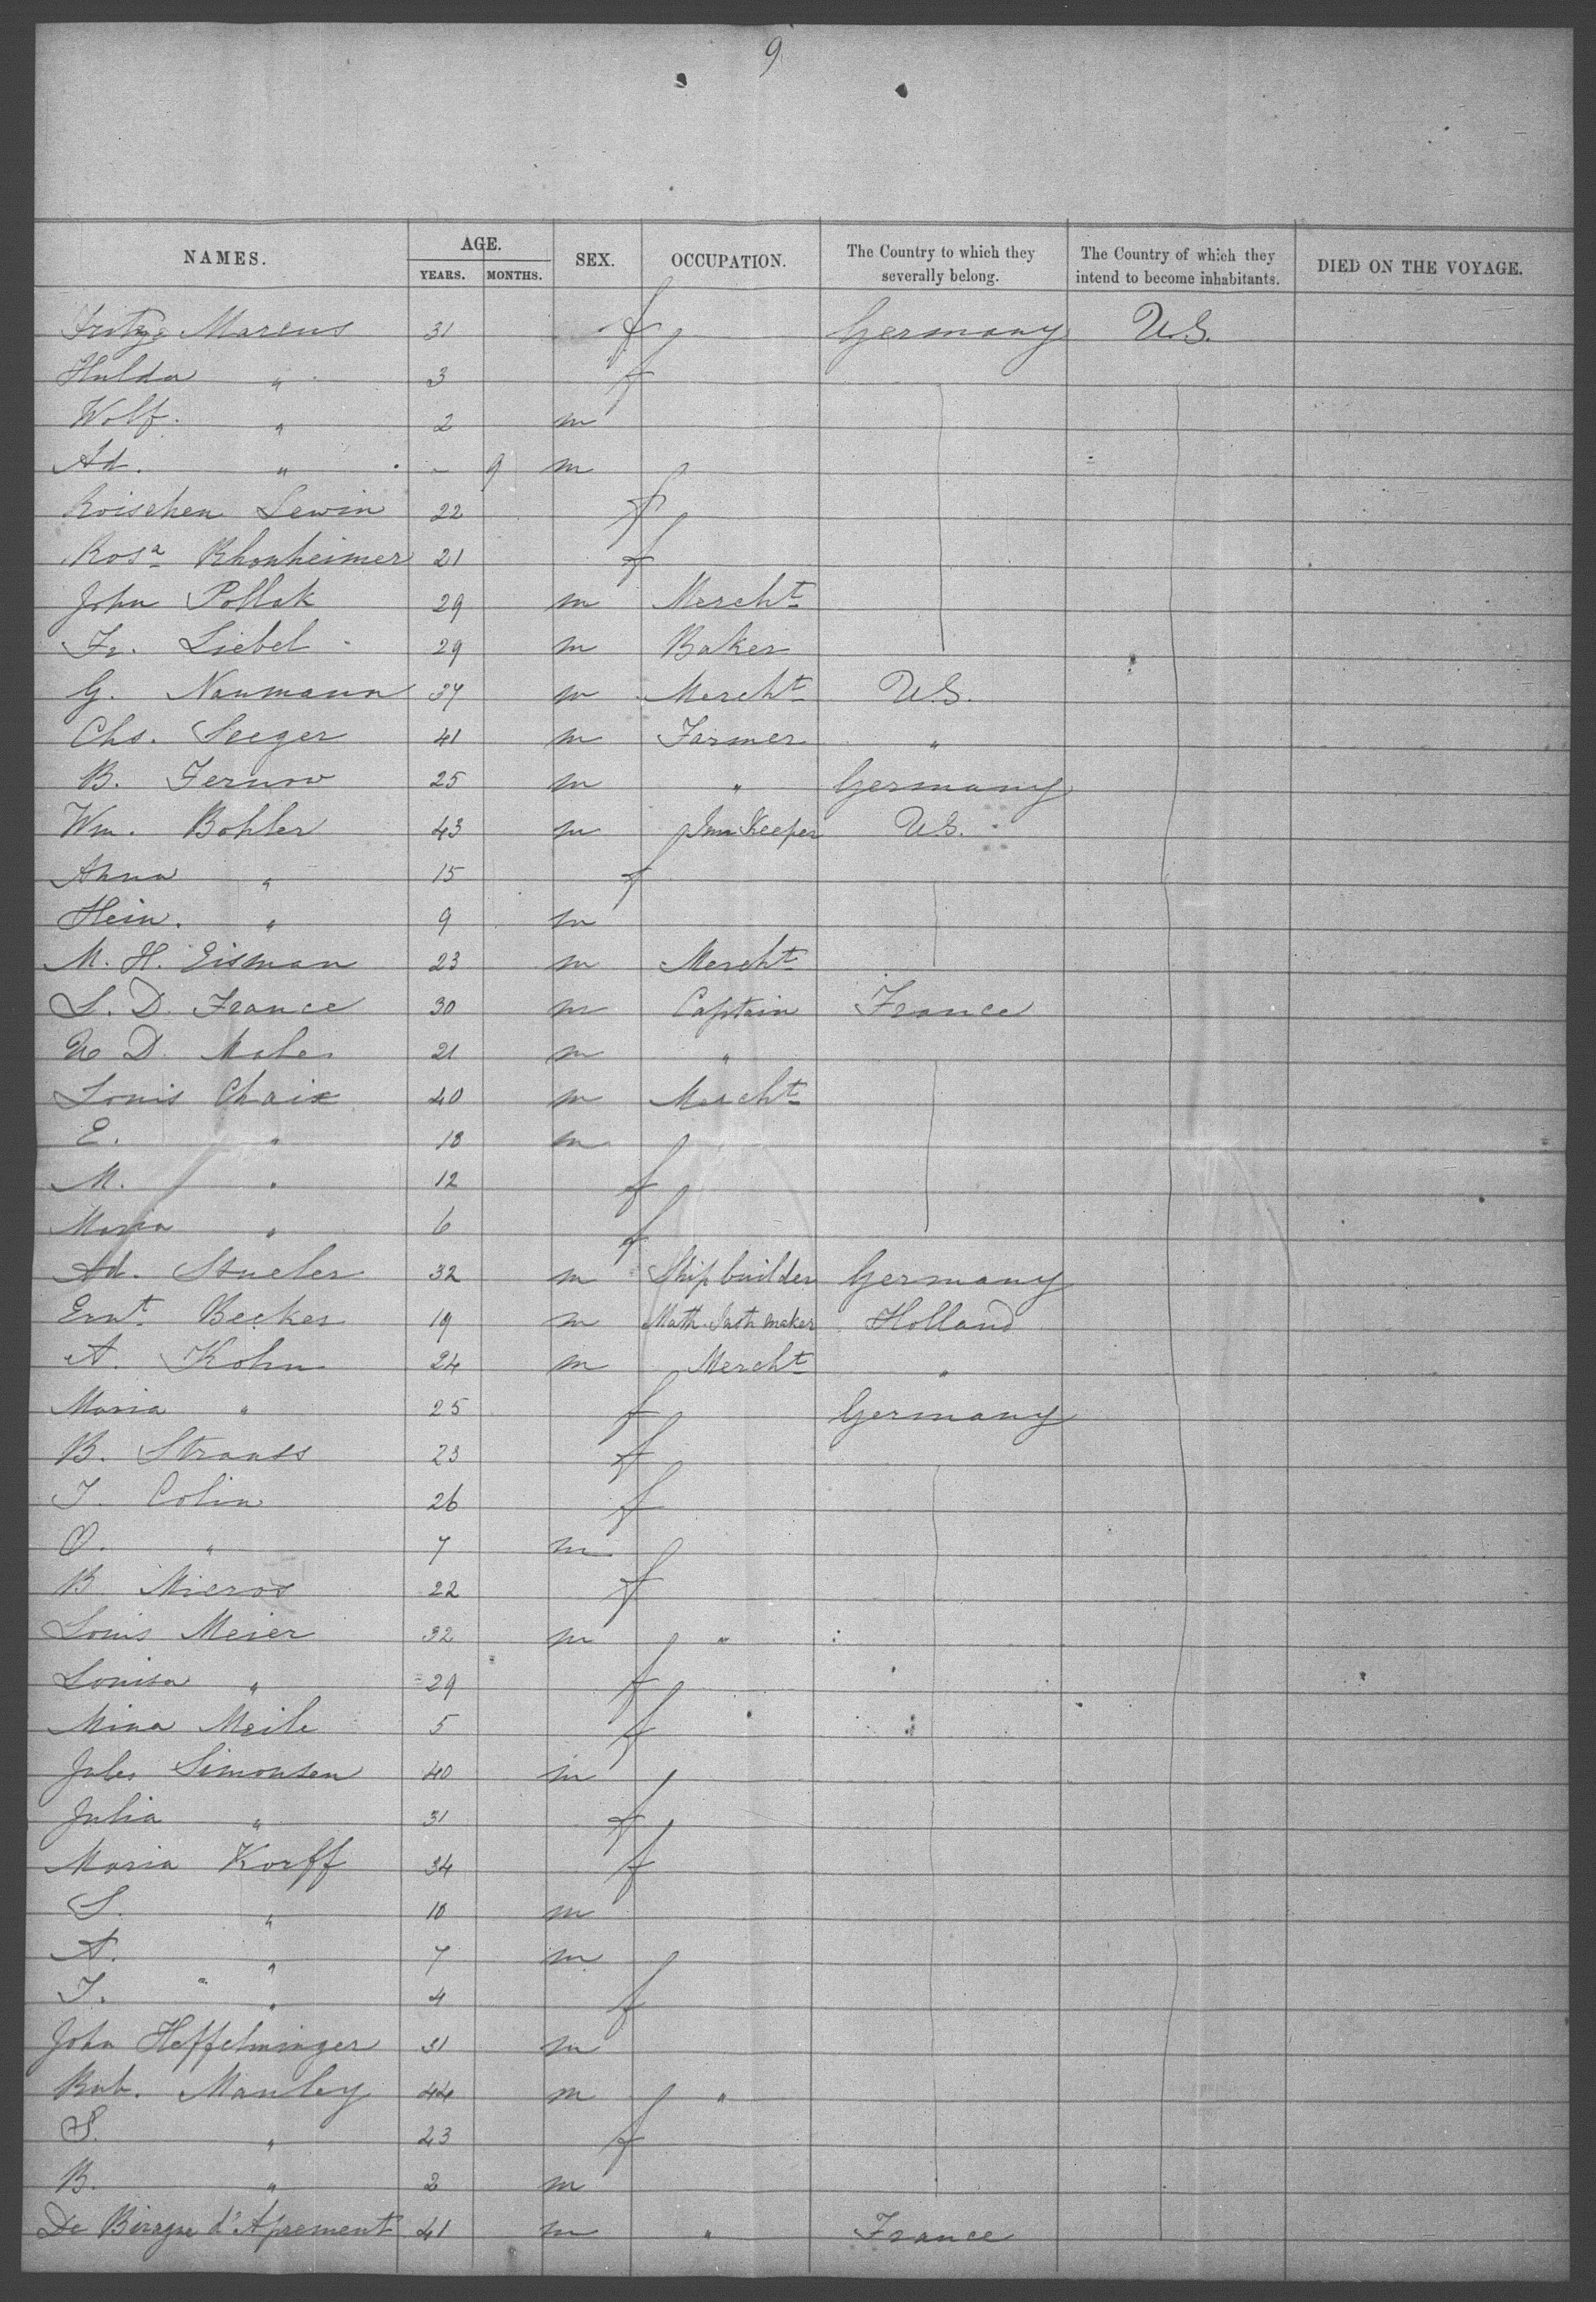 9
NAMES. AGE. YEARS. MONTHS. SEX. OCCUPATION. The Country to which they severally belong. The Country of which they intend to become inhabitants. DIED ON THE VOYAGE.
Marcus 31 f Germany U.S.
Hulda " 3 f
Wolf. " 2 m
Ad. " - 9 m
Roischen Lewin 22 f
Rosa Rhonheimer 21 f
John Pollak 29 m Mercht
Fr. Liebel 29 m Baker
G. Naumann 37 m Mercht U.S.
Chs. Seeger 41 m Farmer "
B. Fernow 25 m " Germany
Wm. Bohler 43 m Inn Keeper U.S.
Anna " 15 f
Hein. " 9 m
M. H. Eisman 23 m Mercht
L. D. France 30 m Captain France
D. 21 m "
Louis Chaix 40 m Mercht
E. " 18 m
M. " 12 f
Maria " 6 f
Ad. Stueler 32 m Ship builder Germany
Ernt. Becker 19 m Math. Inst maker Holland
A. Kohn 24 m Mercht "
Maria " 25 f Germany
B. Strauss 23 f
J. Colin 26 f
O. " 7 m
B. Micros 22 f
Louis Meier 32 m "
Louisa " 29 f
Mina Meile 5 f
Jules Simonsen 40 m
Julia " 31 f
Maria Korff 34 f
S. " 10 m
A. " 7 m
J. " 4 f
John Heffelminger 31 m
Rub. Manley 44 m "
S. " 23 f
B. " 2 m
De Birague d'Apremont 41 m " France